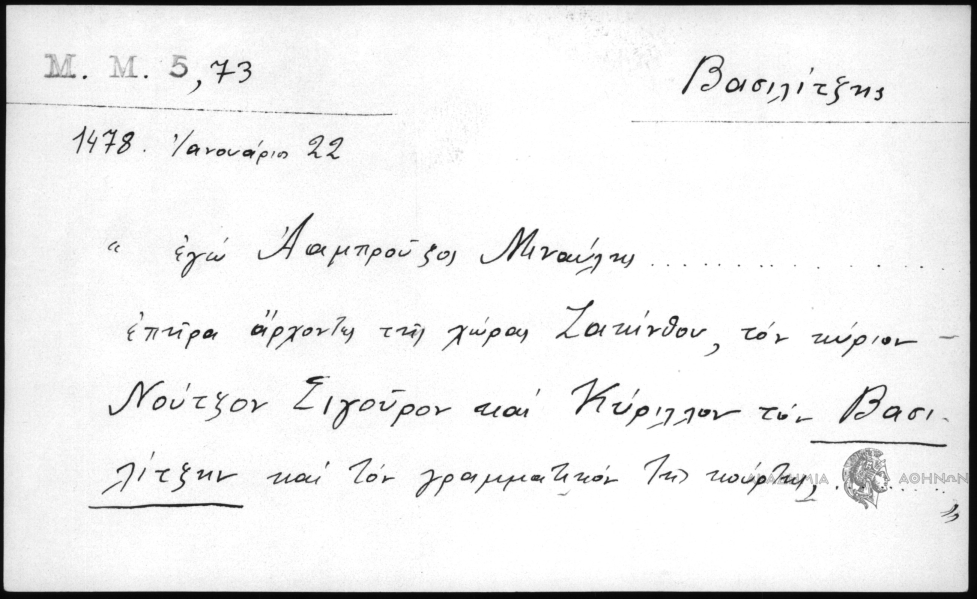 Μ. Μ. 5, 73
Βασιλίτζης
1478. Ἰανουάριος 22
" ἐγώ Ἀαμπροῦζος Μιναύλης ..........
ἐπῆρα ἄρχοντες τῆς χώρας Ζακύνθου, τόν κύριον
Νούτζον Σιγοῦρον καί Κύριλλον τόν Βασι-
λίτζην καί τόν γραμματικόν τῆς κούρτης, ........ "
ΑΚΑΔΗΜΙΑ ΑΘΗΝΩΝ